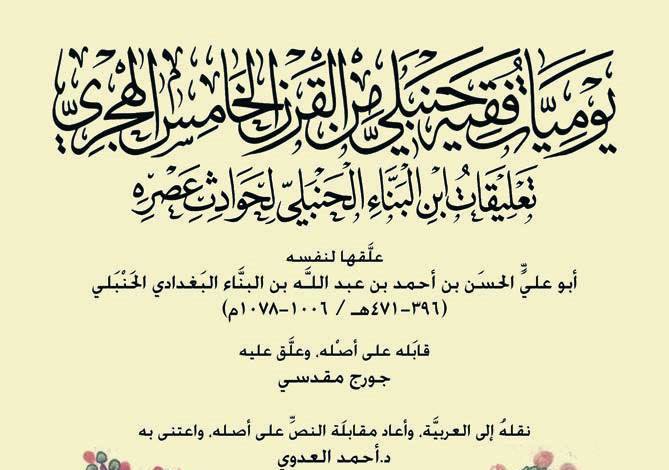 يَوْمِيَّاتُ فَقِيهٍ حَنْبَلِيٍّ مِنَ القَرْنِ الخَامِسِ الهِجْرِيِّ
تَعْلِيقَاتُ ابْنِ البَنَّاءِ الحَنْبَلِيِّ لِحَوَادِثِ عَصْرِهِ
علَّقها لنفسه
أبو عليٍّ الحسَن بن أحمد بن عبد اللـه بن البنَّاء البَغدادي الحَنْبَلي
(٣٩٦-٤٧١هـ / ١٠٠٦-١٠٧٨م)
قابَله على أصْله، وعلَّق عليه
جورج مقدسي
نقلهُ إلى العربيَّة، وأعاد مقابلَة النصِّ على أصله، واعتنى به
د.أحمد العدوي